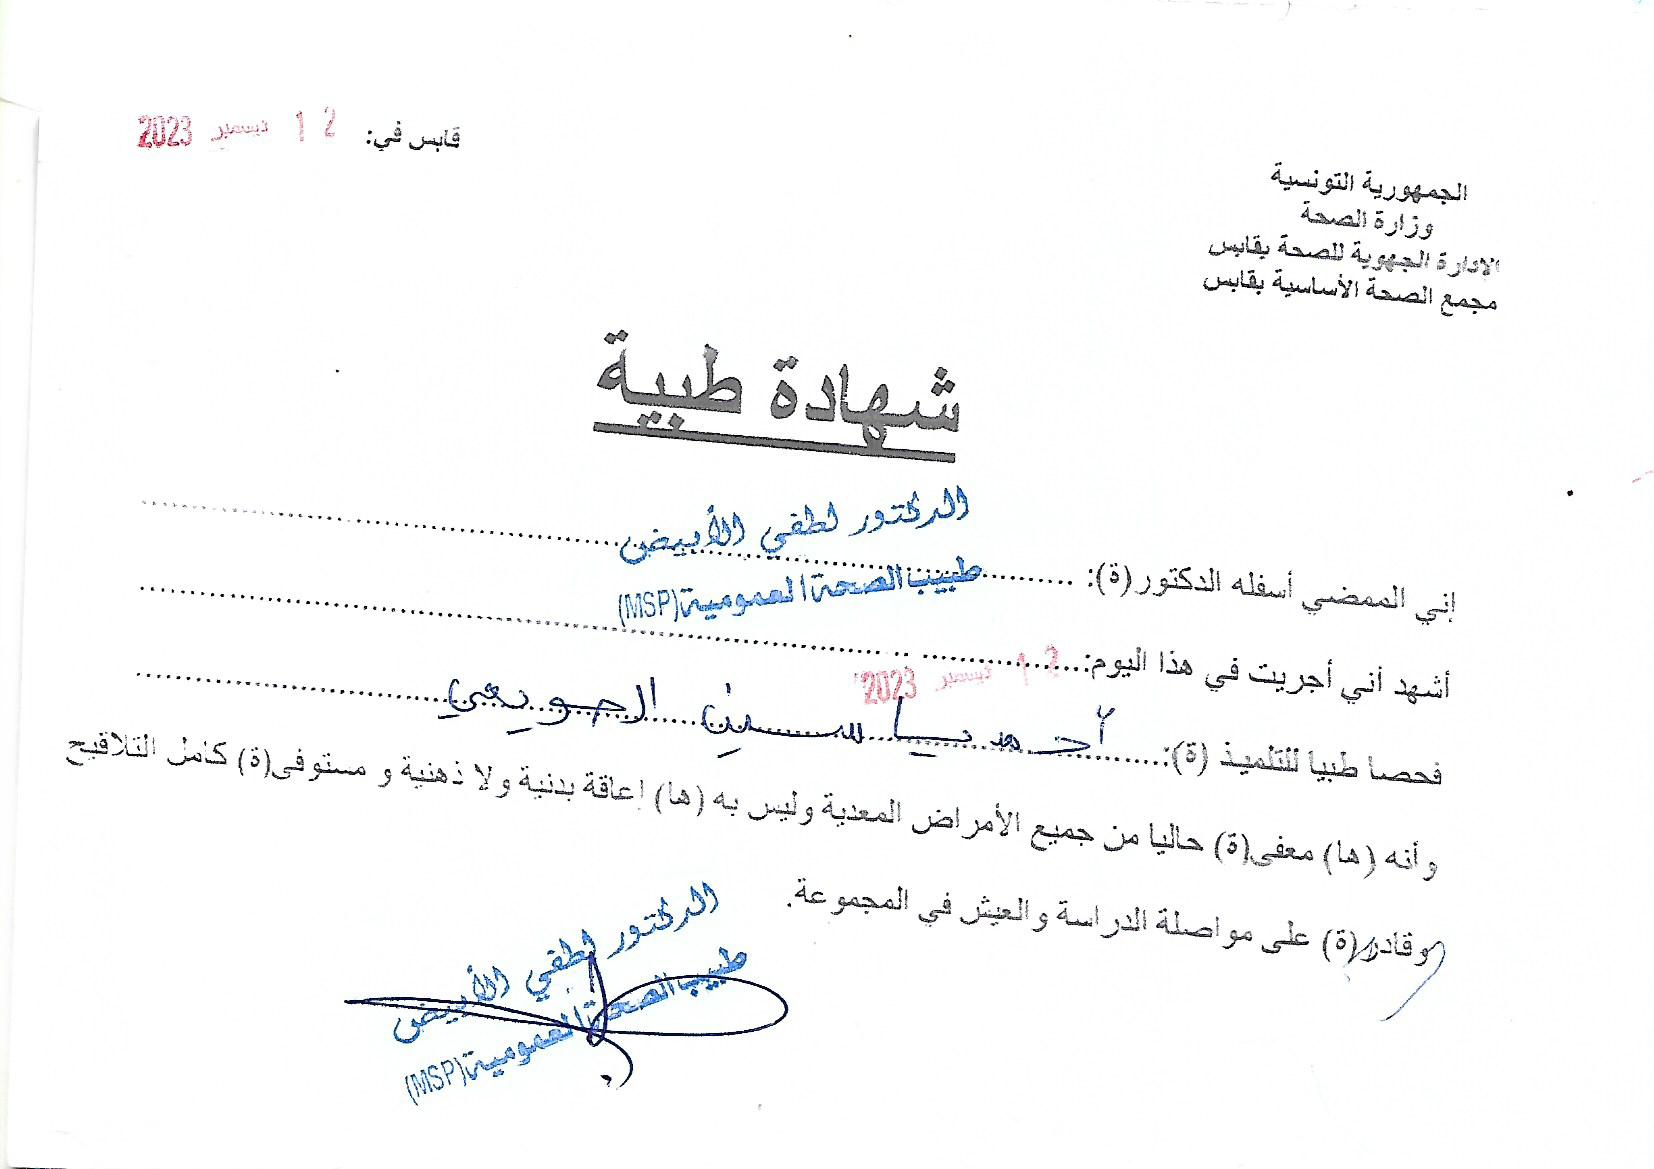 الجمهورية التونسية
وزارة الصحة
الادارة الجهوية للصحة بقابس
مجمع الصحة الأساسية بقابس
قابس في: 12 ديسمبر 2023
شهادة طبية
إني الممضي أسفله الدكتور(ة): الدكتور لطفي الأبيض
طبيب الصحة العمومية (MSP)
أشهد أني أجريت في هذا اليوم: 12 ديسمبر 2023
فحصا طبيا للتلميذ (ة): أحمد ياسين الجويعي
وأنه (ها) معفى(ة) حاليا من جميع الأمراض المعدية وليس به (ها) إعاقة بدنية ولا ذهنية و مستوفى(ة) كامل التلاقيح
وقادر(ة) على مواصلة الدراسة والعيش في المجموعة.
الدكتور لطفي الأبيض
طبيب الصحة العمومية (MSP)